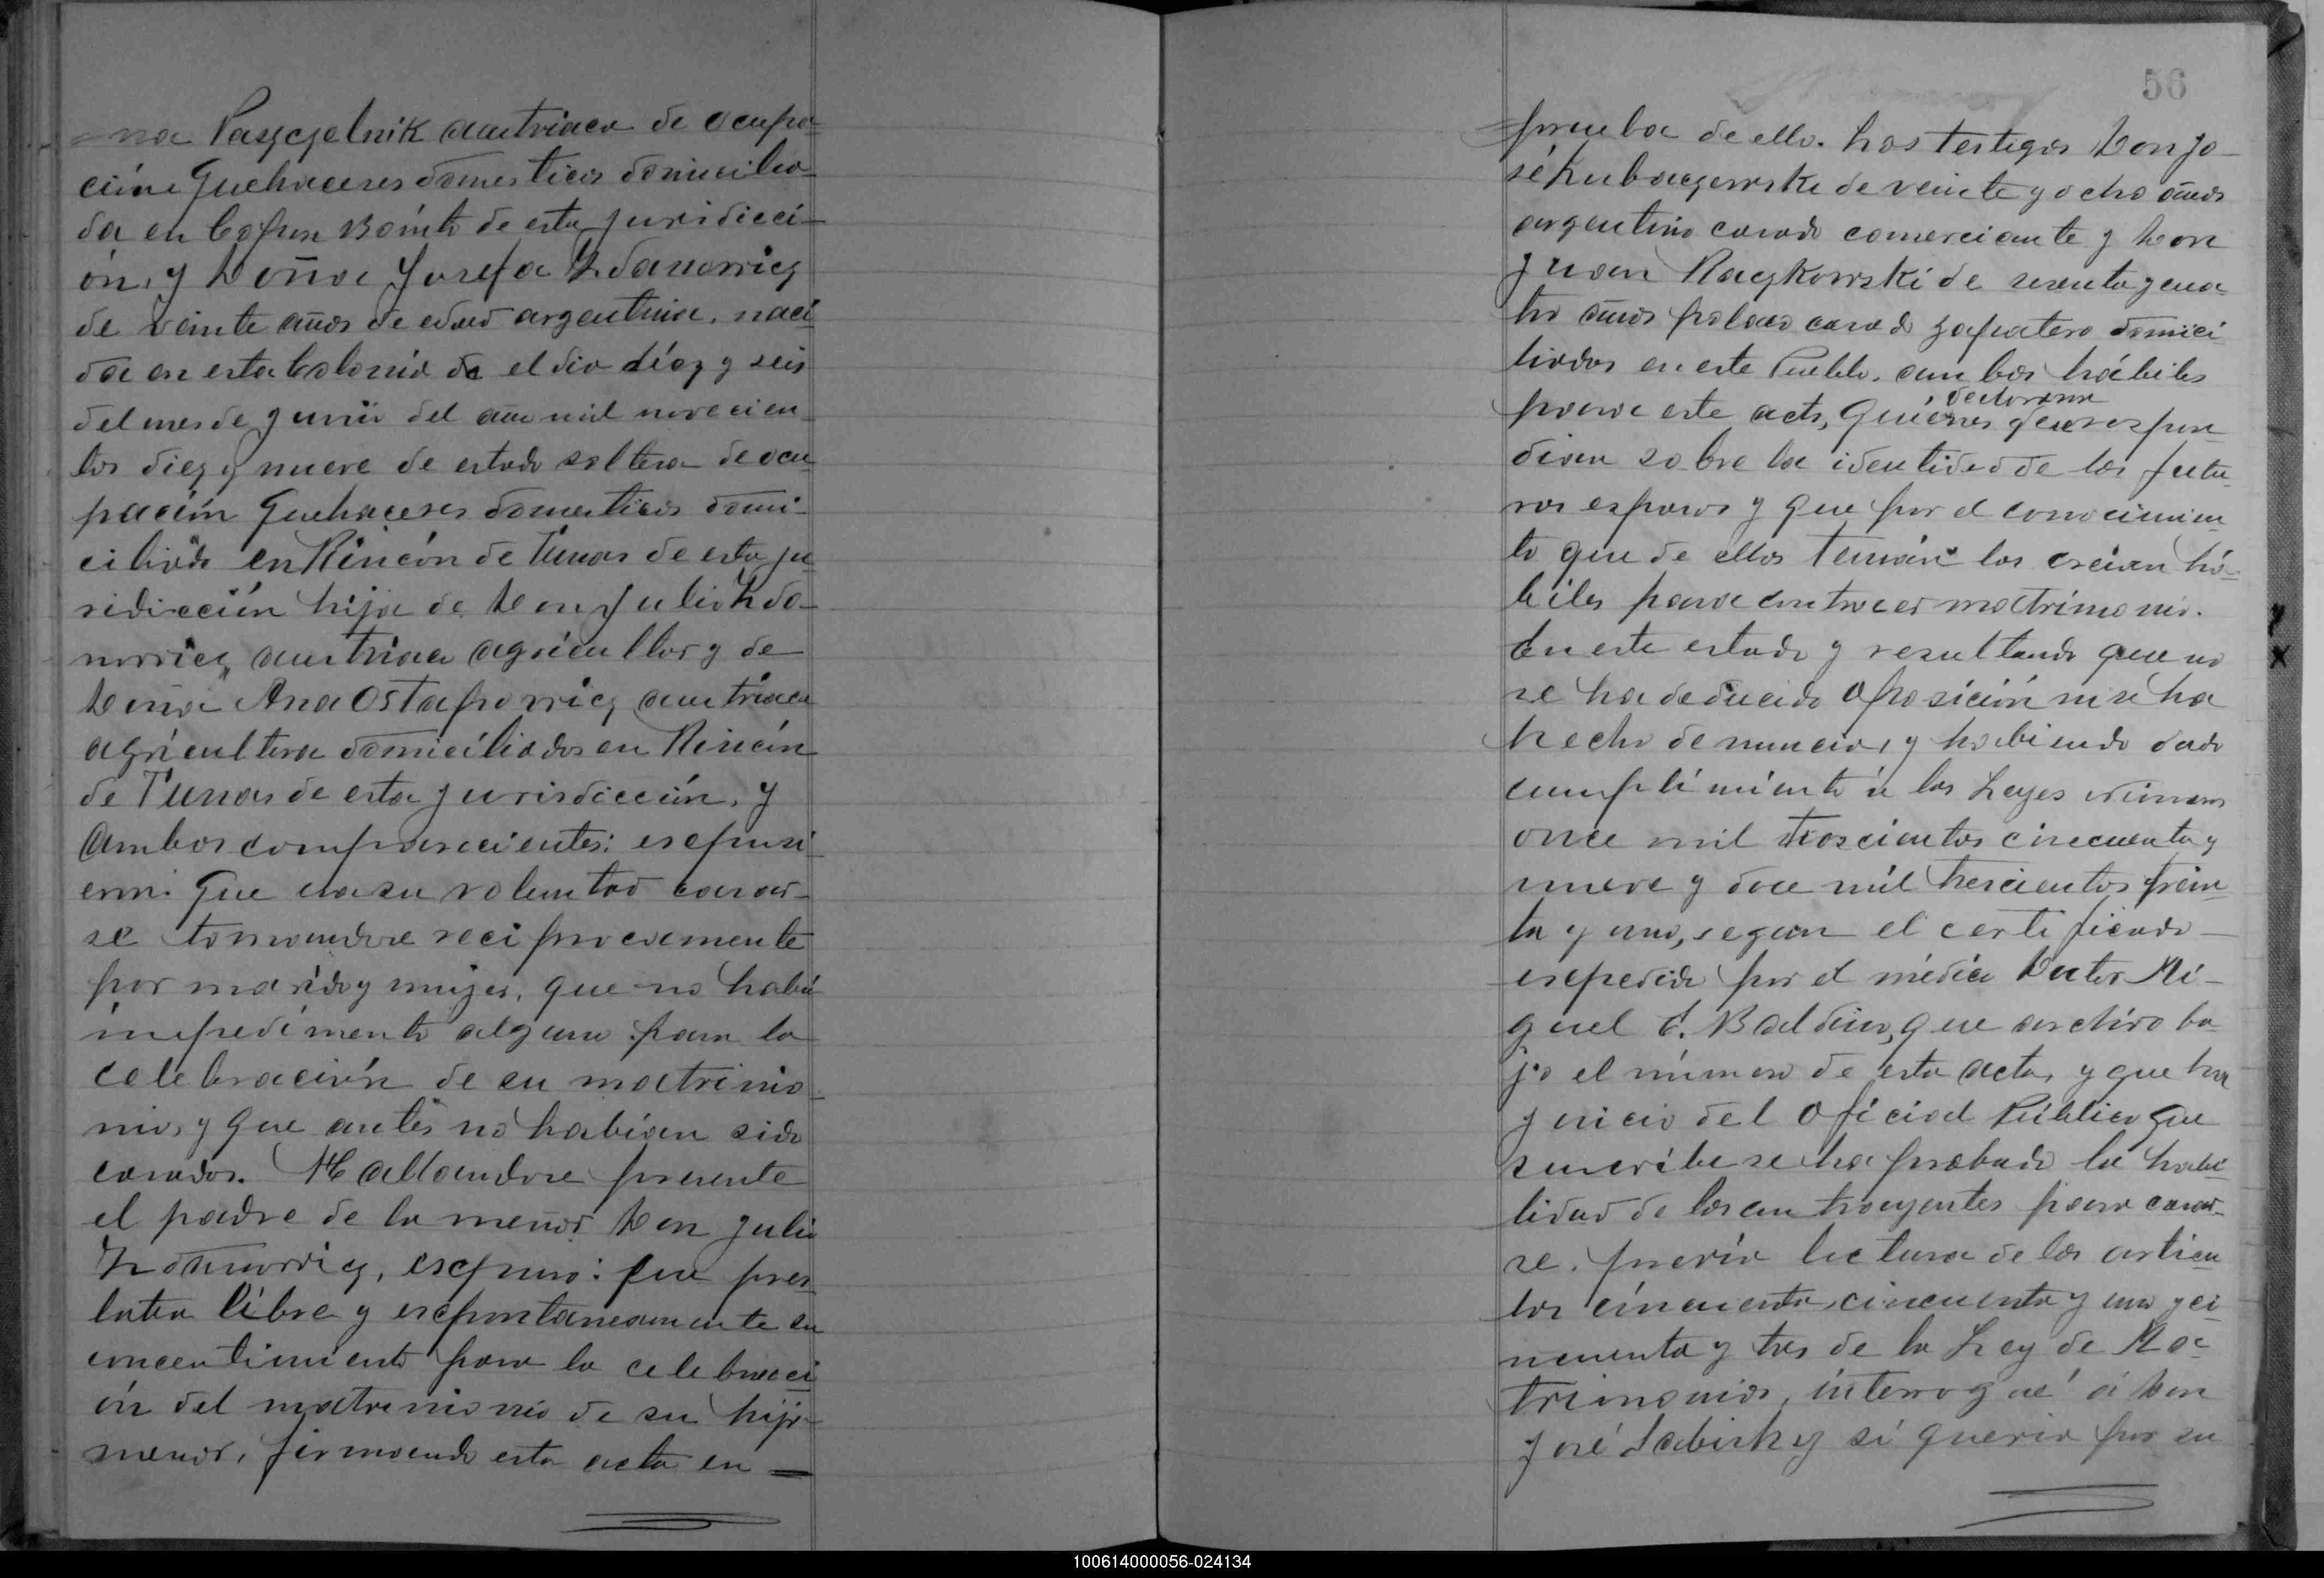 na Paszczelnik austriaca de ocupa
ción Quehaceres domesticos domicilia-
da en Cajon Bonito de esta juridicci-
ón, y Doña Josefa Zdanowicz
de veinte años de edad argentina, naci
da en esta Colonia da el dia diez y seis
del mes de Junio del año mil novecien
tos diez y nueve de estado soltera de ocu
pación Quehaceres domesticos domi-
ciliada en Rincón de Tunas de esta ju
ridicción hija de Don Julio Zda-
nowicz, austriaca agricultor y de
Doña Ana Ostapowicz austriaca
agricultora domiciliados en Rincón
de Tunas de esta jurisdicción, y
ambos comparecientes: expusi
eron: Que era su voluntad casar-
se tomandose reciprocamente
por marido y mujer, que no había
impedimento alguno para la
celebración de su matrimo-
nio, y que antes no habian sido
casados. Hallandose presente
el padre de la menor Don Julio
Zdanowicz, expuso: que pres
taba libre y espontaneamente su
concentimiento para la celebraci
ón del matrimonio de su hija
menor, firmando esta acta en
56
prueba de ello. Los testigos Don Jo-
sé de veinte y ocho años
argentino casado comerciante y Don
Juan Raczkowski de sesenta y cua
tro años polaco casado zapatero domici
liados en este Pueblo, ambos hábiles
declararon
para este acto, Quienes respon
dian sobre la identidad de los futu
ros esposos y que por el conocimien
to que de ellos tenian los creian há-
biles para contraer matrimonio.
En este estado y resultando que no
se ha deducido oposición ni se ha
hecho denuncia, y habiendo dado
cumplimiento a las Leyes números
once mil trescientos cincuenta y
nueve y doce mil trescientos trein
ta y uno, segun el certificado
expedido por el médico Doctor Mi-
guel C. Baldino, que archivo ba
jo el número de esta acta, y que
juicio del Oficial Público que
suscribe se ha probado la habi
lidad de los contrayentes para casar-
se, previa lectura de los articu
los cincuenta, cincuenta y uno y ci
ncuenta y tres de la Ley de Ma-
trimonio, interrogué á Don
José si queria por su
100614000056-024134